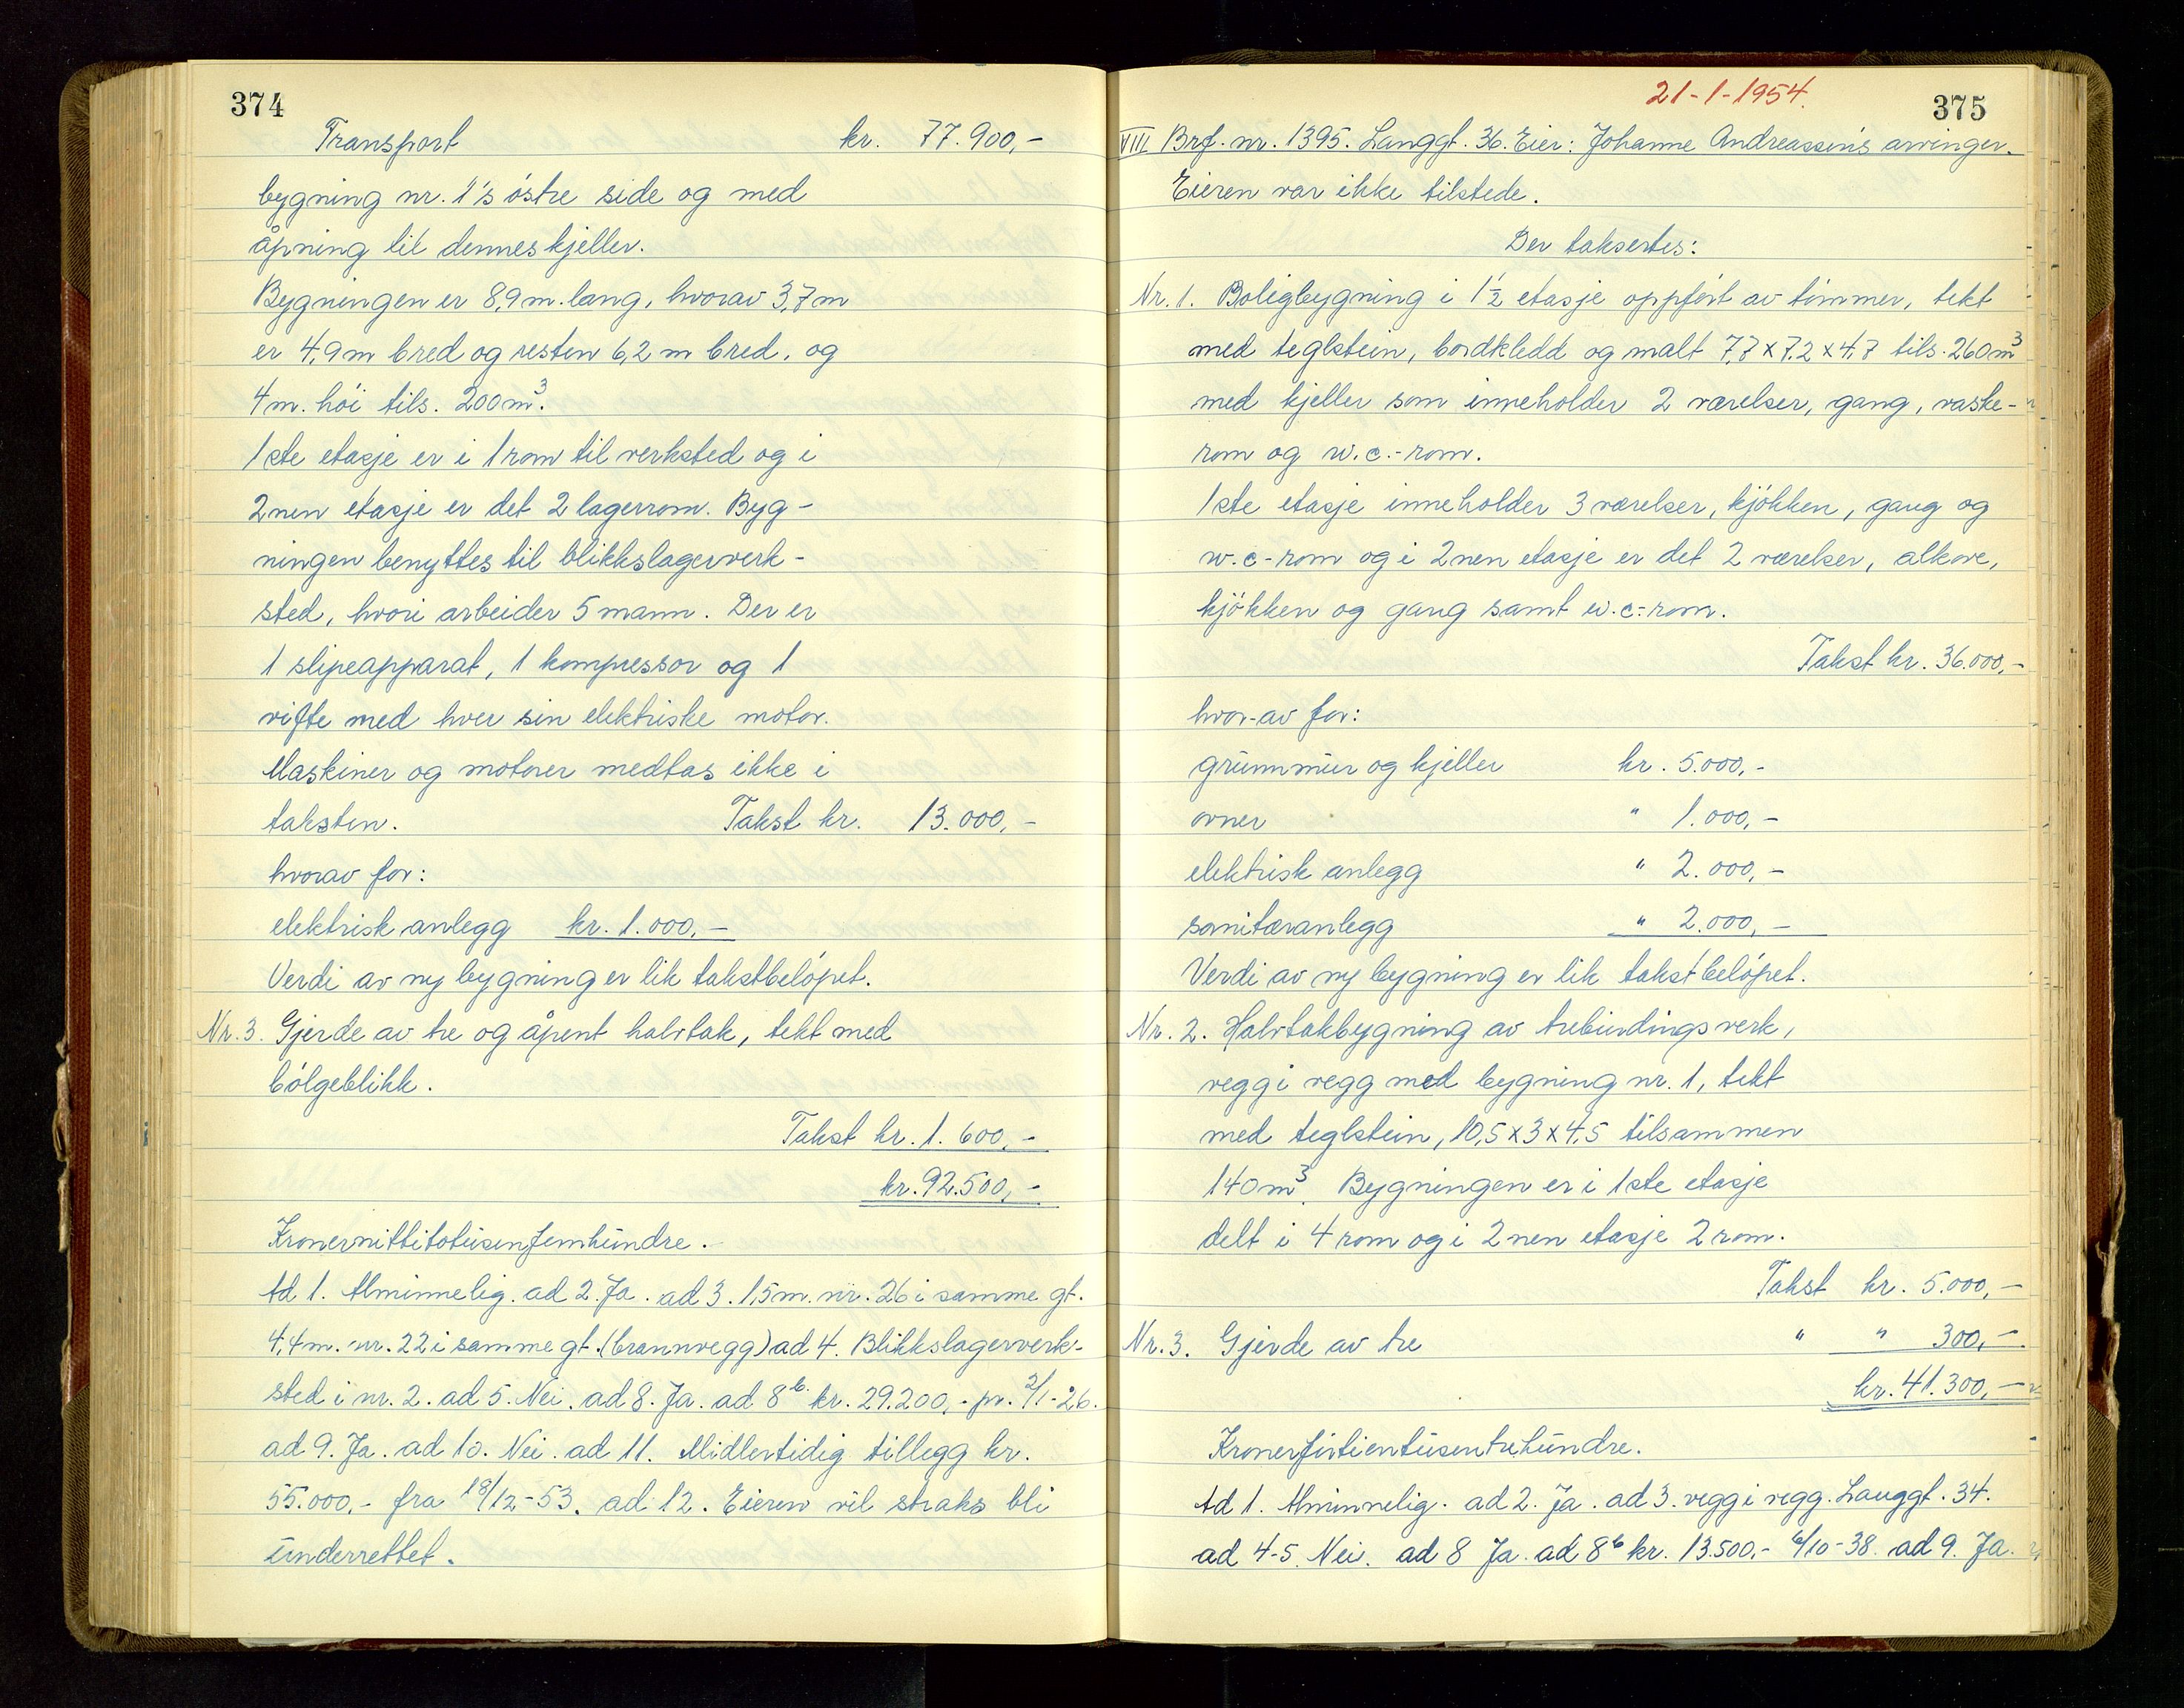 374
Transport kr. 77.900,-
bygning nr. 1's østre side og med
åpning til dennes kjeller.
Bygningen er 8,9 m. lang, hvorav 3,7 m
er 4,9 m bred og resten 6,2 m bred, og
4 m. høi tils. 200 m³.
1ste etasje er i 1 rom til verksted og i
2nen etasje er det 2 lagerrom. Byg-
ningen benyttes til blikkslagerverk-
sted, hvori arbeider 5 mann. Der er
1 slipeapparat, 1 kompressor og 1
vifte med hver sin elektriske motor.
Maskiner og motorer medtas ikke i
taksten. Takst kr. 13.000,-
hvorav for:
elektrisk anlegg kr. 1.000,-
Verdi av ny bygning er lik takstbeløpet.
Nr. 3. Gjerde av tre og åpent halvtak, tekt med
bølgeblikk.
Takst kr. 1.600,-
kr. 92.500,-
Kronernittitotusenfemhundre.
Ad 1. Alminnelig. ad 2. Ja. ad 3. 1,5 m. nr. 26 i samme gt.
4,4 m. nr. 22 i samme gt. (brannvegg) ad 4. Blikkslagerverk-
sted i nr. 2. ad 5. Nei. ad 8. Ja. ad 8b. kr. 29.200,- pr. 2/1-26.
ad 9. Ja. ad 10. Nei. ad 11. Midlertidig tillegg kr.
55.000,- fra 18/12-53. ad 12. Eieren vil straks bli
underrettet.
21-1-1954.
375
VIII Brf. nr. 1395. Langgt. 36. Eier: Johanne Andreassen's arvinger.
Eieren var ikke tilstede.
Der taksertes:
Nr. 1. Boligbygning i 1½ etasje oppført av tømmer, tekt
med teglstein, bordkledd og malt 7,7 x 7,2 x 4,7 tils. 260 m³
med kjeller som inneholder 2 værelser, gang, vaske-
rom og w.c.-rom.
1ste etasje inneholder 3 værelser, kjøkken, gang og
w.c-rom og i 2nen etasje er det 2 værelser, alkove,
kjøkken og gang samt w.c-rom.
Takst kr. 36.000,-
hvor-av for:
grunnmur og kjeller kr. 5.000,-
ovner " 1.000,-
elektrisk anlegg " 2.000,-
sanitæranlegg " 2.000,-
Verdi av ny bygning er lik takstbeløpet.
Nr. 2. Halvtakbygning av trebindingsverk,
vegg i vegg med bygning nr. 1, tekt
med teglstein, 10,5 x 3 x 4,5 tilsammen
140 m³. Bygningen er i 1ste etasje
delt i 4 rom og i 2nen etasje 2 rom.
Takst kr. 5.000,-
Nr. 3. Gjerde av tre " " 300,-
kr. 41.300,-
Kronerførtientusentrehundre.
Ad 1. Alminnelig. ad 2. Ja. ad 3. vegg i vegg. Langgt. 34.
ad 4-5. Nei. ad 8 Ja. ad 8b kr. 13.500,- /10-38. ad 9. Ja.